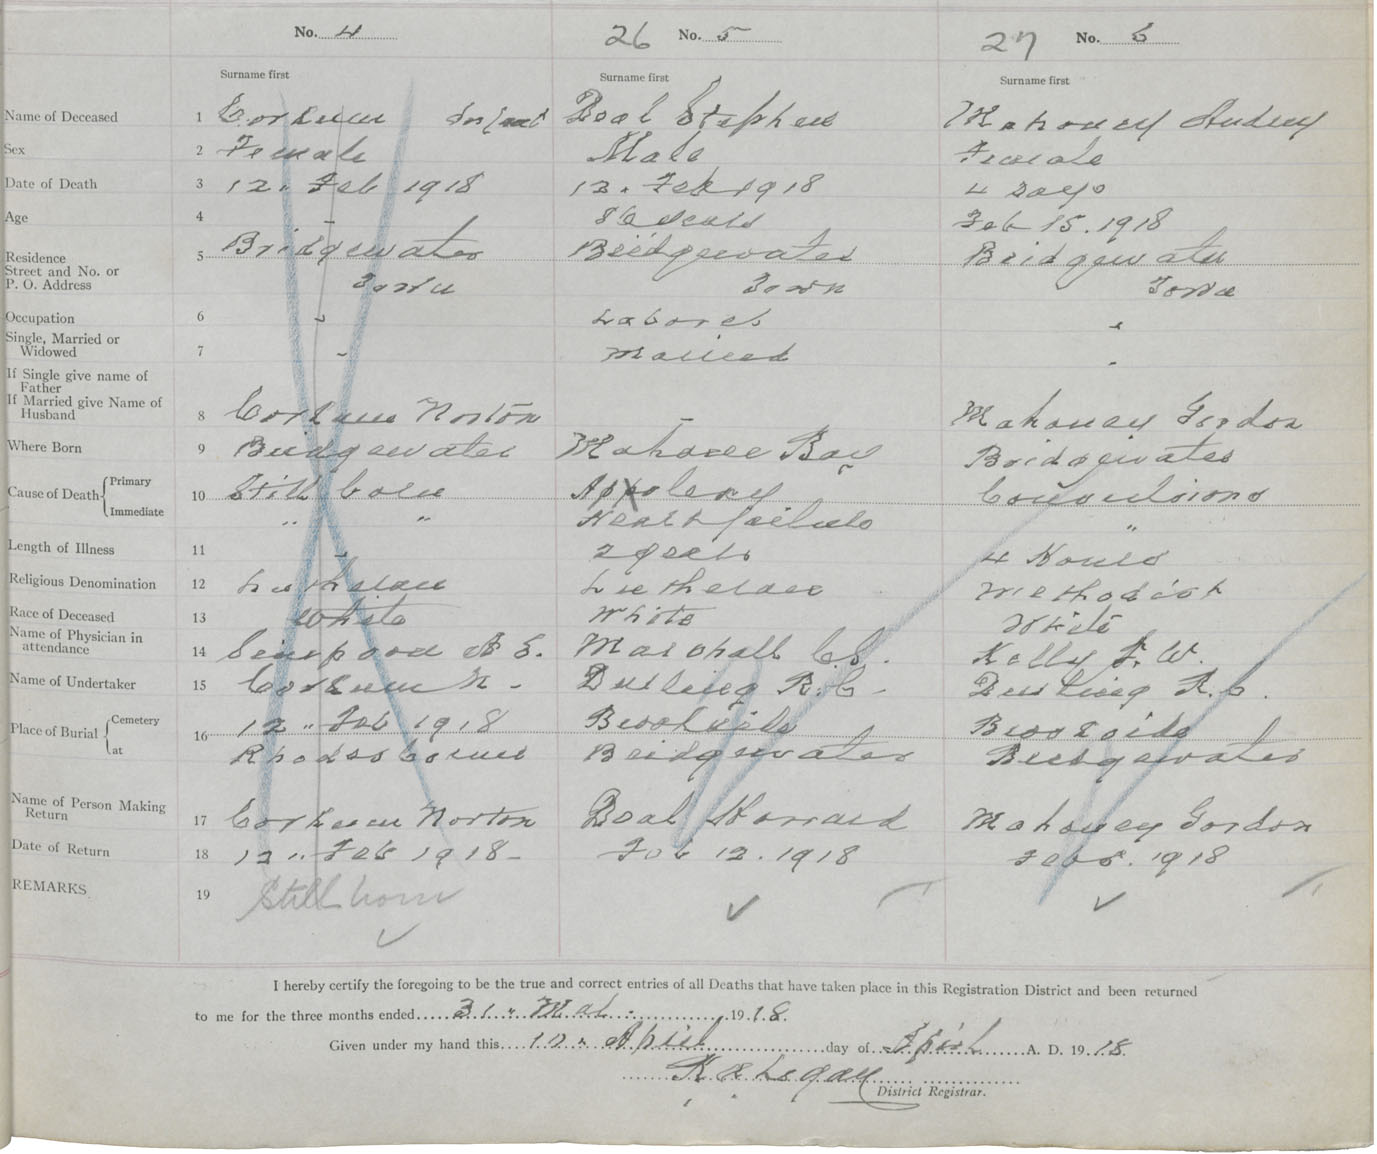 No. 4 26 No. 5 27 No. 6
Surname first Surname first Surname first
Name of Deceased 1 Corkum Infant Boal Stephen Mahoney Audrey
Sex 2 Female Male Female
Date of Death 3 12" Feb 1918 12" Feb 1918 4 Days
Age 4 - 86 years Feb 15. 1918
Residence 5 Bridgewater Bridgewater Bridgewater
Street and No. or
P. O. Address Town Town Town
Occupation 6 " Laborer "
Single, Married or
Widowed 7 " Married "
If Single give name of
Father
If Married give Name of
Husband 8 Corkum Norton - Mahoney Gordon
Where Born 9 Bridgewater Mahone Bay Bridgewater
Cause of Death { Primary 10 Still born Appoplexy Convulsions
Immediate " " Heart failure "
Length of Illness 11 " 2 years 4 Hours
Religious Denomination 12 Lutheran Lutheran Methodist
Race of Deceased 13 White White White
Name of Physician in
attendance 14 Marshall C.S. Kelly F. W.
Name of Undertaker 15 Corkum N - R. C - R. C.
Place of Burial { Cemetery 16 12" Feb 1918 Brookside Brookside
at Rhodes Corner Bridgewater Bridgewater
Name of Person Making
Return 17 Corkum Norton Boal Howard Mahoney Gordon
Date of Return 18 12" Feb 1918- Feb 12. 1918 1918
REMARKS 19 Still born
I hereby certify the foregoing to be the true and correct entries of all Deaths that have taken place in this Registration District and been returned
to me for the three months ended 31" Mar 1918.
Given under my hand this April day of April A. D. 1918.
Legay
District Registrar.